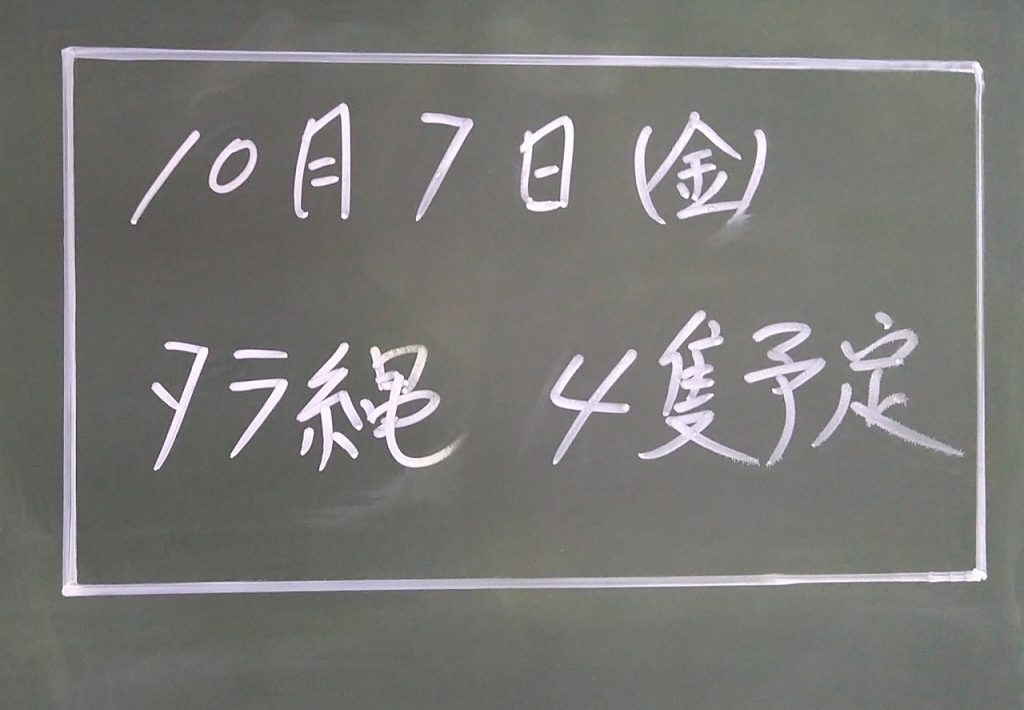 10月7日(金)
タラ縄 4隻予定